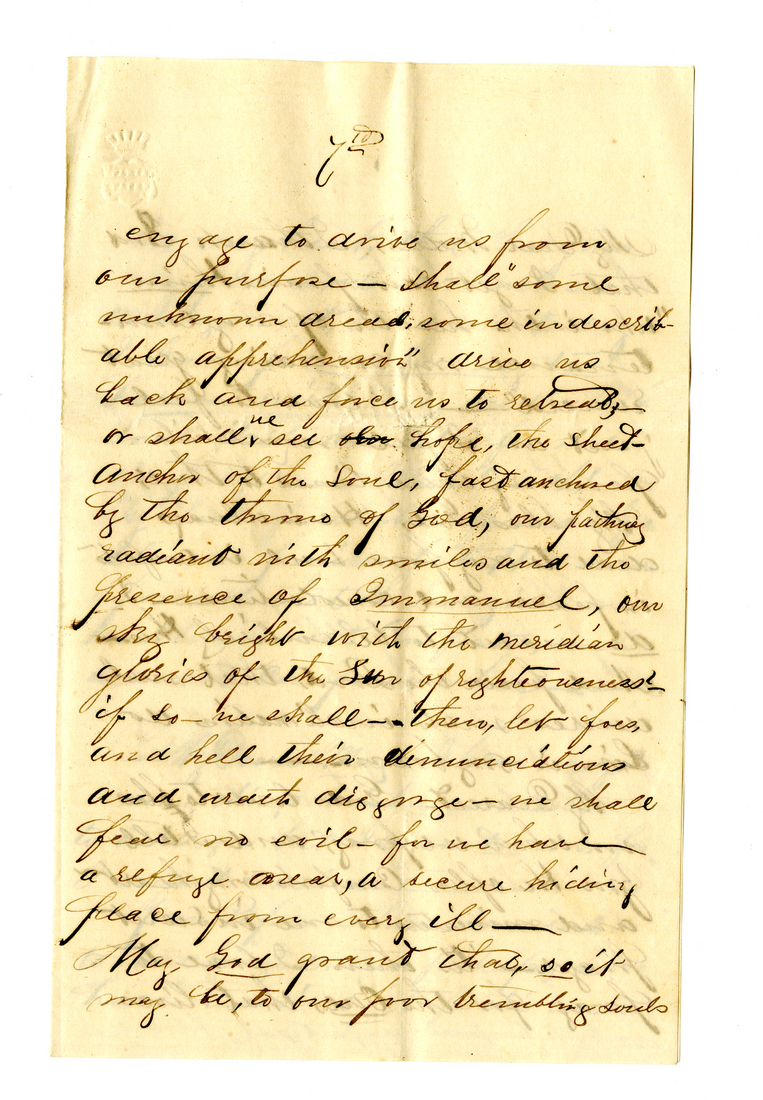 7th
engage to drive us from
our purpose — shall "some
unknown dread, some indescrib-
able apprehension" drive us
back and force us to retreat, —
or shall we see hope, the sheet-
anchor of the soul, fast anchored
by the throne of God, our pathway
radiant with smiles and the
presence of Immanuel, our
sky bright with the meridian
glories of the Sun of righteousness —
if so — we shall — then, let foes,
and hell their denunciations
and wrath disgorge — we shall
fear no evil — for we have
a refuge near, a secure hiding
place from every ill —
May God grant that, so it
may be, to our poor trembling souls